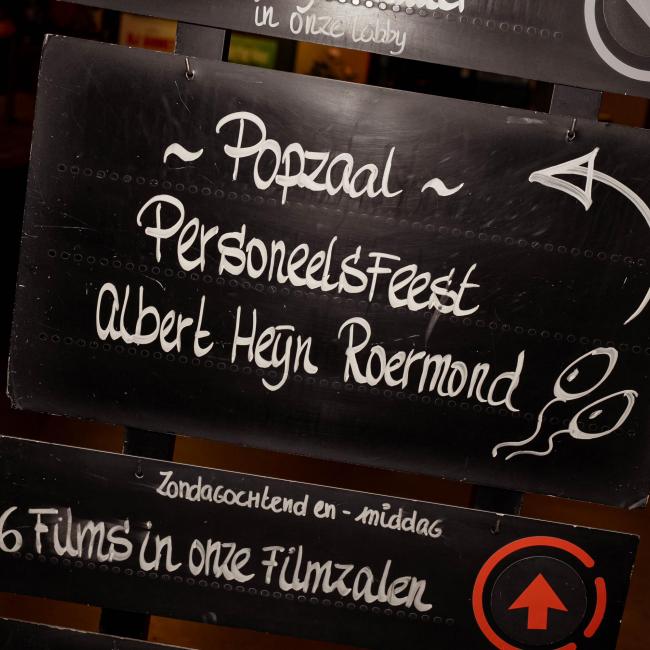 in onze lobby
~ Popzaal ~
PersoneelsFeest
Albert Heijn Roermond
Zondagochtend en - middag
6 Films in onze Filmzalen